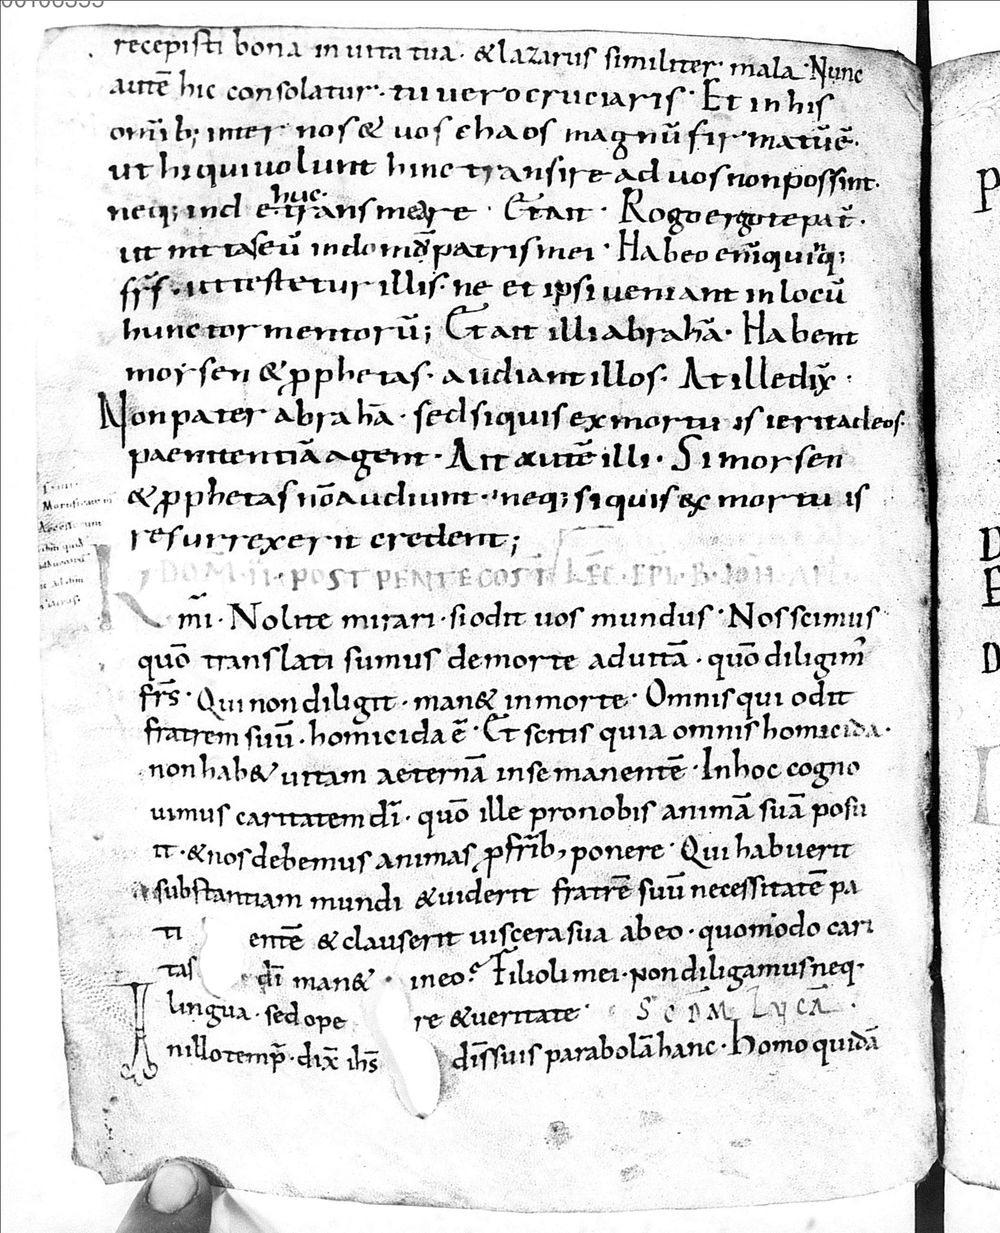 recepisti bona in uita tua · & lazarus similiter mala · Nunc
autē hic consolatur · tu uero cruciaris · Et in his
omīb; inter nos & uos chaos magnū firmatū ē ·
ut hi qui uolunt hinc transire ad uos non possint ·
neq; inde huc transmeare · Et ait · Rogo ergo te pat̄ ·
ut mittas eū in domū patris mei · Habeo enī quinq;
fr̄s · ut testetur illis · ne et ipsi ueniant in locū
hunc tormentorū; Et ait illi abrahā · Habent
moysen & pphetas · audiant illos · At ille dix̄ ·
Non pater abrahā · sed si quis ex mortuis ierit ad eos ·
paenitentiā agent · Ait autē illi · Si moysen
& pphetas nō audiunt · neq; si quis ex mortuis
resurrexerit credent;
DOM · II · POST PENTECOST LEC · EPL · B · IOH · APL
K̄mi · Nolite mirari · si odit uos mundus · Nos scimus
quō translati sumus de morte ad uitā · quō diligim̄
fr̄s · Qui non diligit · man& in morte · Omnis qui odit
fratrem suū · homicida ē · Et scitis quia omnis homicida ·
non hab& uitam aeternā in se manentē · In hoc cogno
uimus caritatem dī · quō ille pro nobis animā suā posu
it · & nos debemus animas p frīb; ponere · Qui habuerit
substantiam mundi & uiderit fratrē suū necessitatē pa
ti entē & clauserit uiscera sua ab eo · quomodo cari
tas dī man& in eo? Filioli mei · non diligamus neq·
lingua · sed ope re & ueritate · SCDM LUCĀ ·
In illo temp̄ · dix̄ ih̄s dīs suis parabolā hanc · Homo quidā